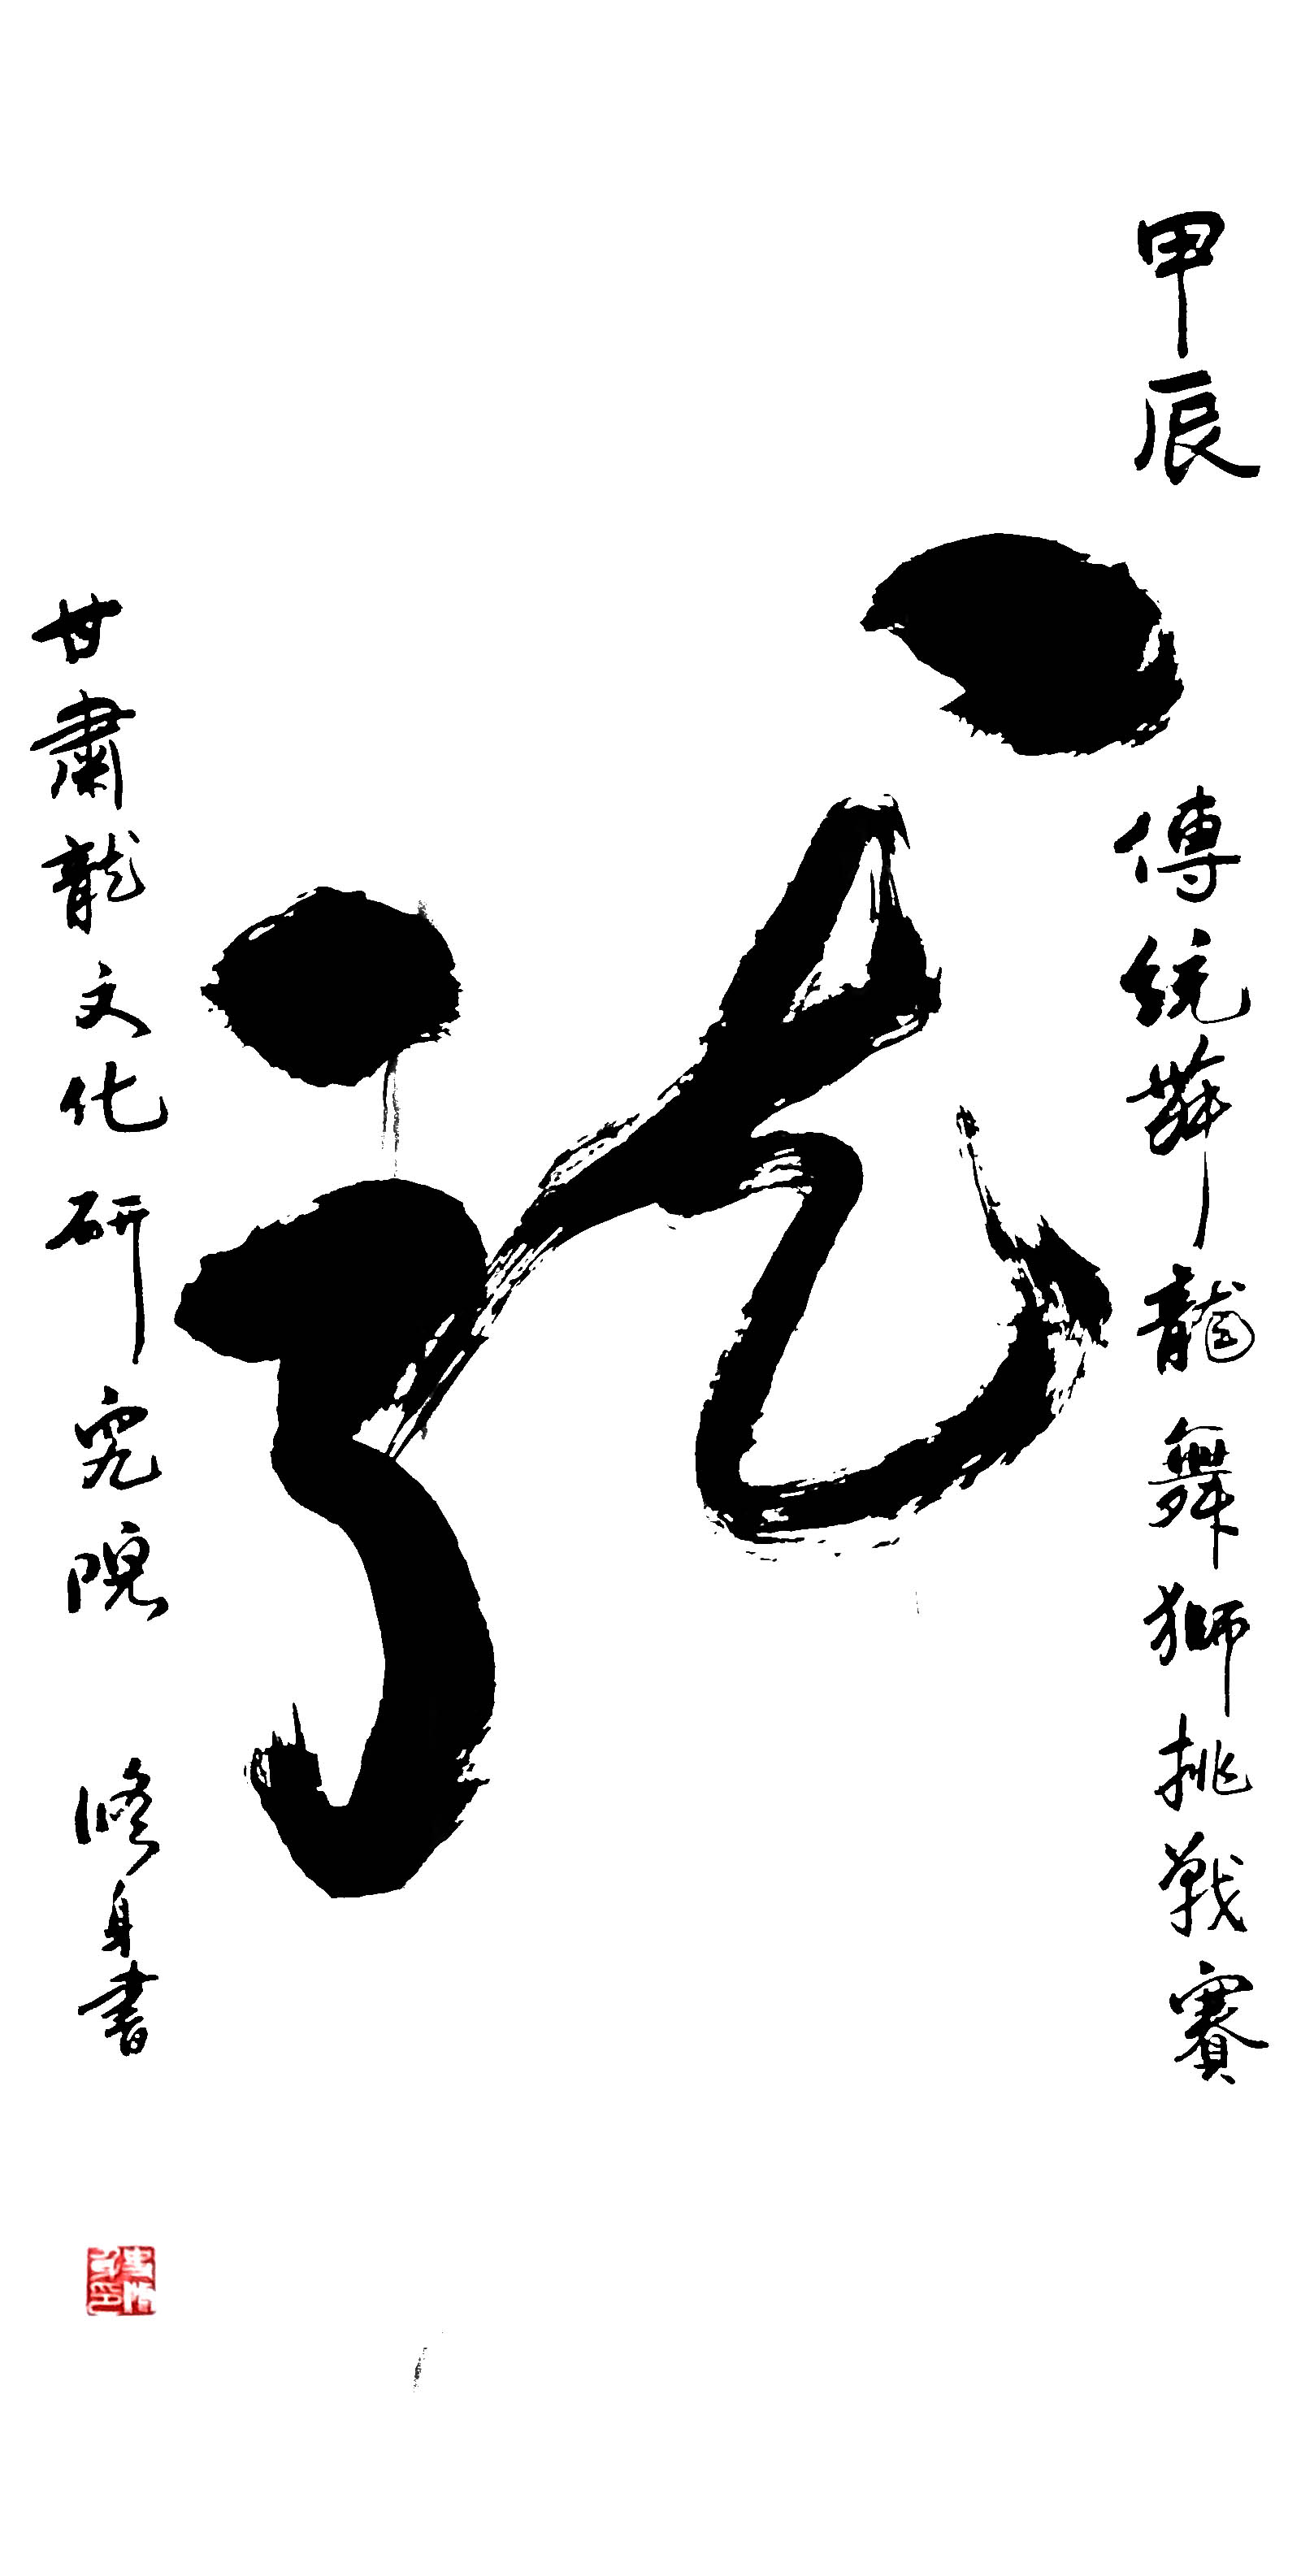 甲辰
傳統舞龍舞獅挑戰賽
龍
甘肅龍文化研究院 修身書